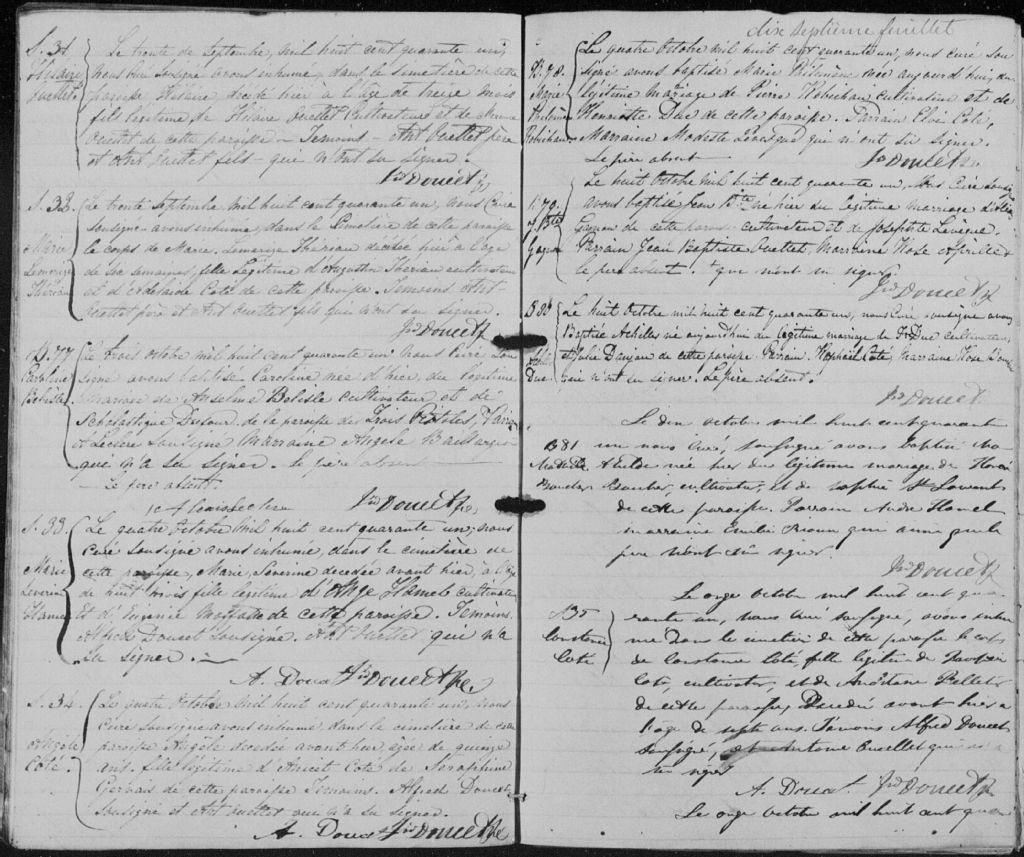 S. 31
Hilaire
Ouellet
Le trente de Septembre, mil huit cent quarante un,
nous Curé Sousigné avons inhumé, dans le Cimetière de cette
paroisse Hilaire decédé hier à l'age de treize mois
fils légitime de Hilaire Ouellet Cultivateur et de
Ouellet de cette paroisse – Temoins – Ant Ouellet père
et Ant Ouellet fils – qui n'ont su signer.
Jos Doucet Ptre
S. 32
Marie
Lumerise
Theriau
Le trente Septembre mil huit cent quarante un, nous Curé
Sousigné avons inhumé, dans le Cimetière de cette paroisse
le corps de Marie Lumerise Theriau decedée hier à l'age
de six semaines, fille Legitime d'Augustin Theriau cultivateur
et d'Adelaide Coté de cette paroisse. Temoins Ant.
Ouellet père et Ant Ouellet fils qui n'ont su signer.
Jos Doucet Ptre
B. 77
Caroline
Belisle
Le trois Octobre mil huit cent quarante un nous Curé Sou
signé avons baptisé Caroline née d'hier, du Légitime
mariage de Anselme Belisle cultivateur et de
Scholastique Dufour de la paroisse des Trois Pistoles, Parrain
Leclerc Sousigné Marraine Angele
qui n'a su signer. Le père absent
– Le père absent.
Jos Doucet Ptre
S. 33
Marie
Severine
Hamel
Le quatre Octobre mil huit cent quarante un, nous
Curé Sousigné avons inhumé, dans le cimetière de
cette paroisse, Marie, Severine decedée avant hier, à l'age
de huit mois fille legitime d'Ange Hamel cultivateur
et d'Eugenie de cette paroisse. Temoins
Alfred Doucet Sousigné, Ant Ouellet qui n'a
su signer. –
A. Doucet Jos Doucet Ptre
S. 34
Angele
Coté.
Le quatre Octobre mil huit cent quarante un, nous
Curé Sousigné avons inhumé dans le cimetière de cette
paroisse Angele decedée avant hier, agée de quinze
ans. fille légitime d'Anicet Coté de Seraphine
Gervais de cette paroisse Temoins. Alfred Doucet
Sousigné et Ant Ouellet qui n'a su signer.
A. Doucet Jos Doucet Ptre
dix septième feuillet
B. 78.
Marie
Philomène
Robichau
Le quatre Octobre mil huit cent quarante un, nous curé Sou
signé avons baptisé Marie Philomène née aujourd'hui, du
légitime mariage de Pierre Robichau cultivateur et de
Henriette Duc de cette paroisse. Parrain Eloi Coté,
Marraine Modeste Levasque qui n'ont su signer.
Le père absent
Jos Doucet Ptre
B. 79.
J. Bte
Gagnon
Le huit Octobre mil huit cent quarante un, Nous Curé Sousigné
avons baptisé Jean Bte né hier du Legitime mariage
Gagnon de cette paroisse cultivateur et de Josephte Leveque
Parrain Jean Baptiste Ouellet, Marraine Rose
le père absent. que n'ont su signer
Jos Doucet Ptre
B 80
Duc
Le huit Octobre mil huit cent quarante un, nous Curé sousigné avons
Baptisé Achilles né aujourd'hui du Légitime mariage de Duc cultivateur
et Julie Danjou de cette paroisse. Parrain Raphael Coté, Marraine Rose
qui n'ont su signer. Le père absent.
Jos Doucet
B 81
Boucher
Le dix octobre mil huit cent quarante
un nous Curé, soussigné avons Baptisé Ma
thilde née hier du légitime mariage de Honoré
Boucher, cultivateur, et de Sophie St Laurent
de cette paroisse. Parrain André Hamel
marraine Emilie Rioux qui ainsi que le
père n'ont su signer.
Jos Doucet Ptre
S 35
Constance
Coté
Le onze octobre mil huit cent qua
rante un, nous Curé soussigné, avons inhu
mé Dans le cimetier de cette paroisse le corps
de Constance Coté, fille légitime de
Coté, cultivateur, et de Pelletier
de cette paroisse, Decedée avant hier à
l'age de sept ans. Témoins Alfred Doucet
soussigné, et Antoine Ouellet qui n'a
su signer
A. Doucet Jos Doucet Ptre
Le onze octobre mil huit cent quar